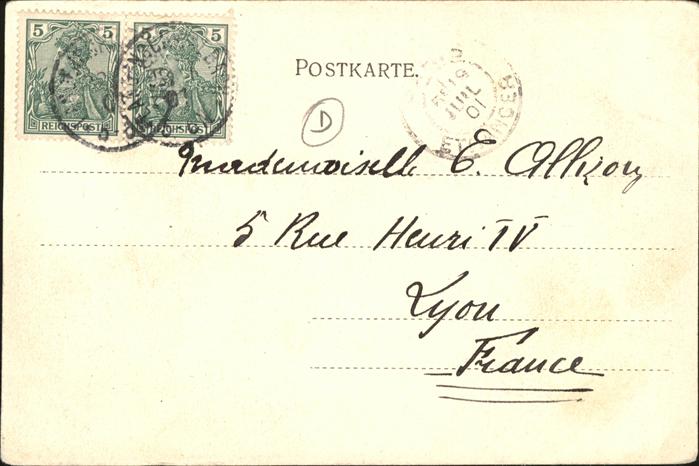 5 5 5 5
REICHSPOST REICHSPOST
POSTKARTE.
D
JUIL
01
Mademoiselle E. Allizon
5 Rue Henri IV
Lyon
France